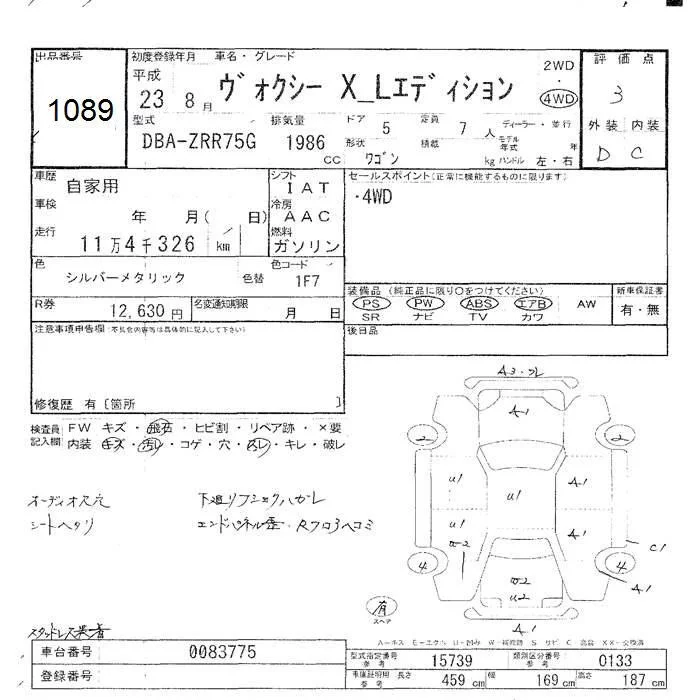 出品番号
1089
初度登録年月 車名・グレード
平成
23 8月
ヴォクシー X_Lエディション
2WD
・
4WD
評価点
3
外装 内装
D C
型式
DBA-ZRR75G
排気量
1986
CC
ドア 5 定員 7 人
形状 積載
ワゴン kg
ディーラー・並行
モデル
年式 年
ハンドル 左・右
車歴 自家用
車検
年 月( 日)
走行
11万4千326 km
シフト
IAT
冷房
AAC
燃料
ガソリン
セールスポイント(正常に機能するものに限ります)
・4WD
色
シルバーメタリック 色替
色コード
1F7
R券
12,630円
名変通知期限
月 日
装備品 (純正品に限り○をつけてください)
PS PW ABS エアB AW
SR ナビ TV カワ
新車保証書
有・無
後日品
注意事項申告欄(不具合内容等は具体的に記入して下さい)
修復歴 有〔箇所 〕
検査員 FW キズ・飛石・ヒビ割・リペア跡・×要
記入欄 内装 キズ・汚レ・コゲ・穴・スレ・キレ・破レ
オーディオ穴
シートヘタリ
下廻リ
A3
A1
2 2
U1 A1
U1
U1 A1
C1
4 4
A1
U2
A1
有
スペア
A=キズ E=エクボ U=凹み W=補修跡 S サビ C 腐食 XX=交換済
車台番号 0083775
登録番号
型式指定番号
参考 15739
類別区分番号
参考 0133
車庫証明用 長さ
参考 459 cm 幅 169 cm 高さ 187 cm